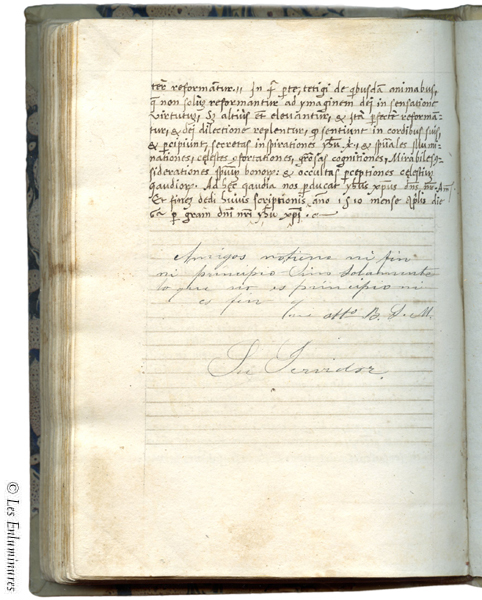 ter reformantur. In q̄ pte, tetigi de qbusdā animabus,
q̄ non solū reformantur ad ymaginem dei in sensatione
virtutū, Sʒ altius et eleuantur, & ita pfecte reforma-
tur, & dei dilectione replentur, qʒ sentiunt in cordibus suis,
& pcipiunt, secretas inspirationes yhū x̄i, & spūales illumi-
nationes, celestes
siderationes spūum bonorū, & occultas pceptiones celestiū
gaudiorū, Ad hec gaudia nos pducat yhūs xpus dns nr. Am̄
Et finem dedi huius scriptionis ano 1510 mense Aplis die
6a p gram dnī nrī yhū xpi.
Amigos notiene ni fin
ni principio Sino Solamente
lo que no es principio ni
es fin y
su atto B. S. M.
Su Servidor
© Les Enluminures